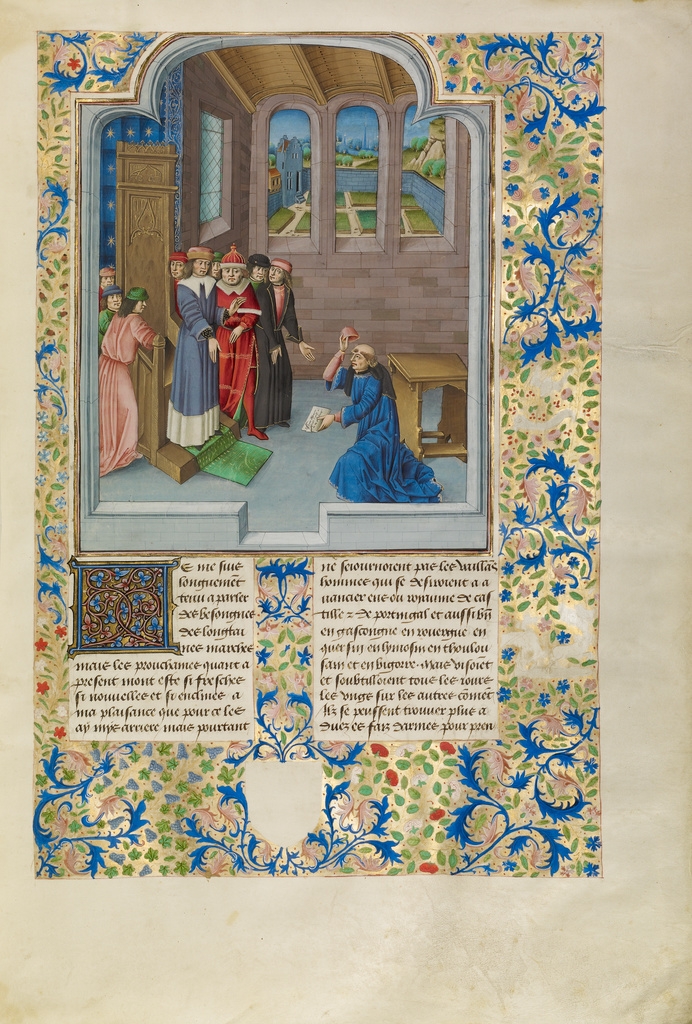 E me suis
longuement
tenu a parler
des besongnes
des longtai
nes marches
mais les prouchaines quant a
present mont este si fresches
si nouuelles et si enclines a
ma plaisance que pour ce les
ay mys arriere mais pourtant
ne seiournoient pas les vaillãs
hommes qui se desiroient a a
uancer ens ou royaume de cas
tille & de portingal et aussi biẽ
en gascongne en rouergue en
quersin en lymosin en thoulou
sain et en bigorre. Mais visoiẽt
et soubtilloient tous les iours
les vngs sur les autres cõmẽt
ilz se peussent trouuer plus a
duez es faiz darmes pour pren